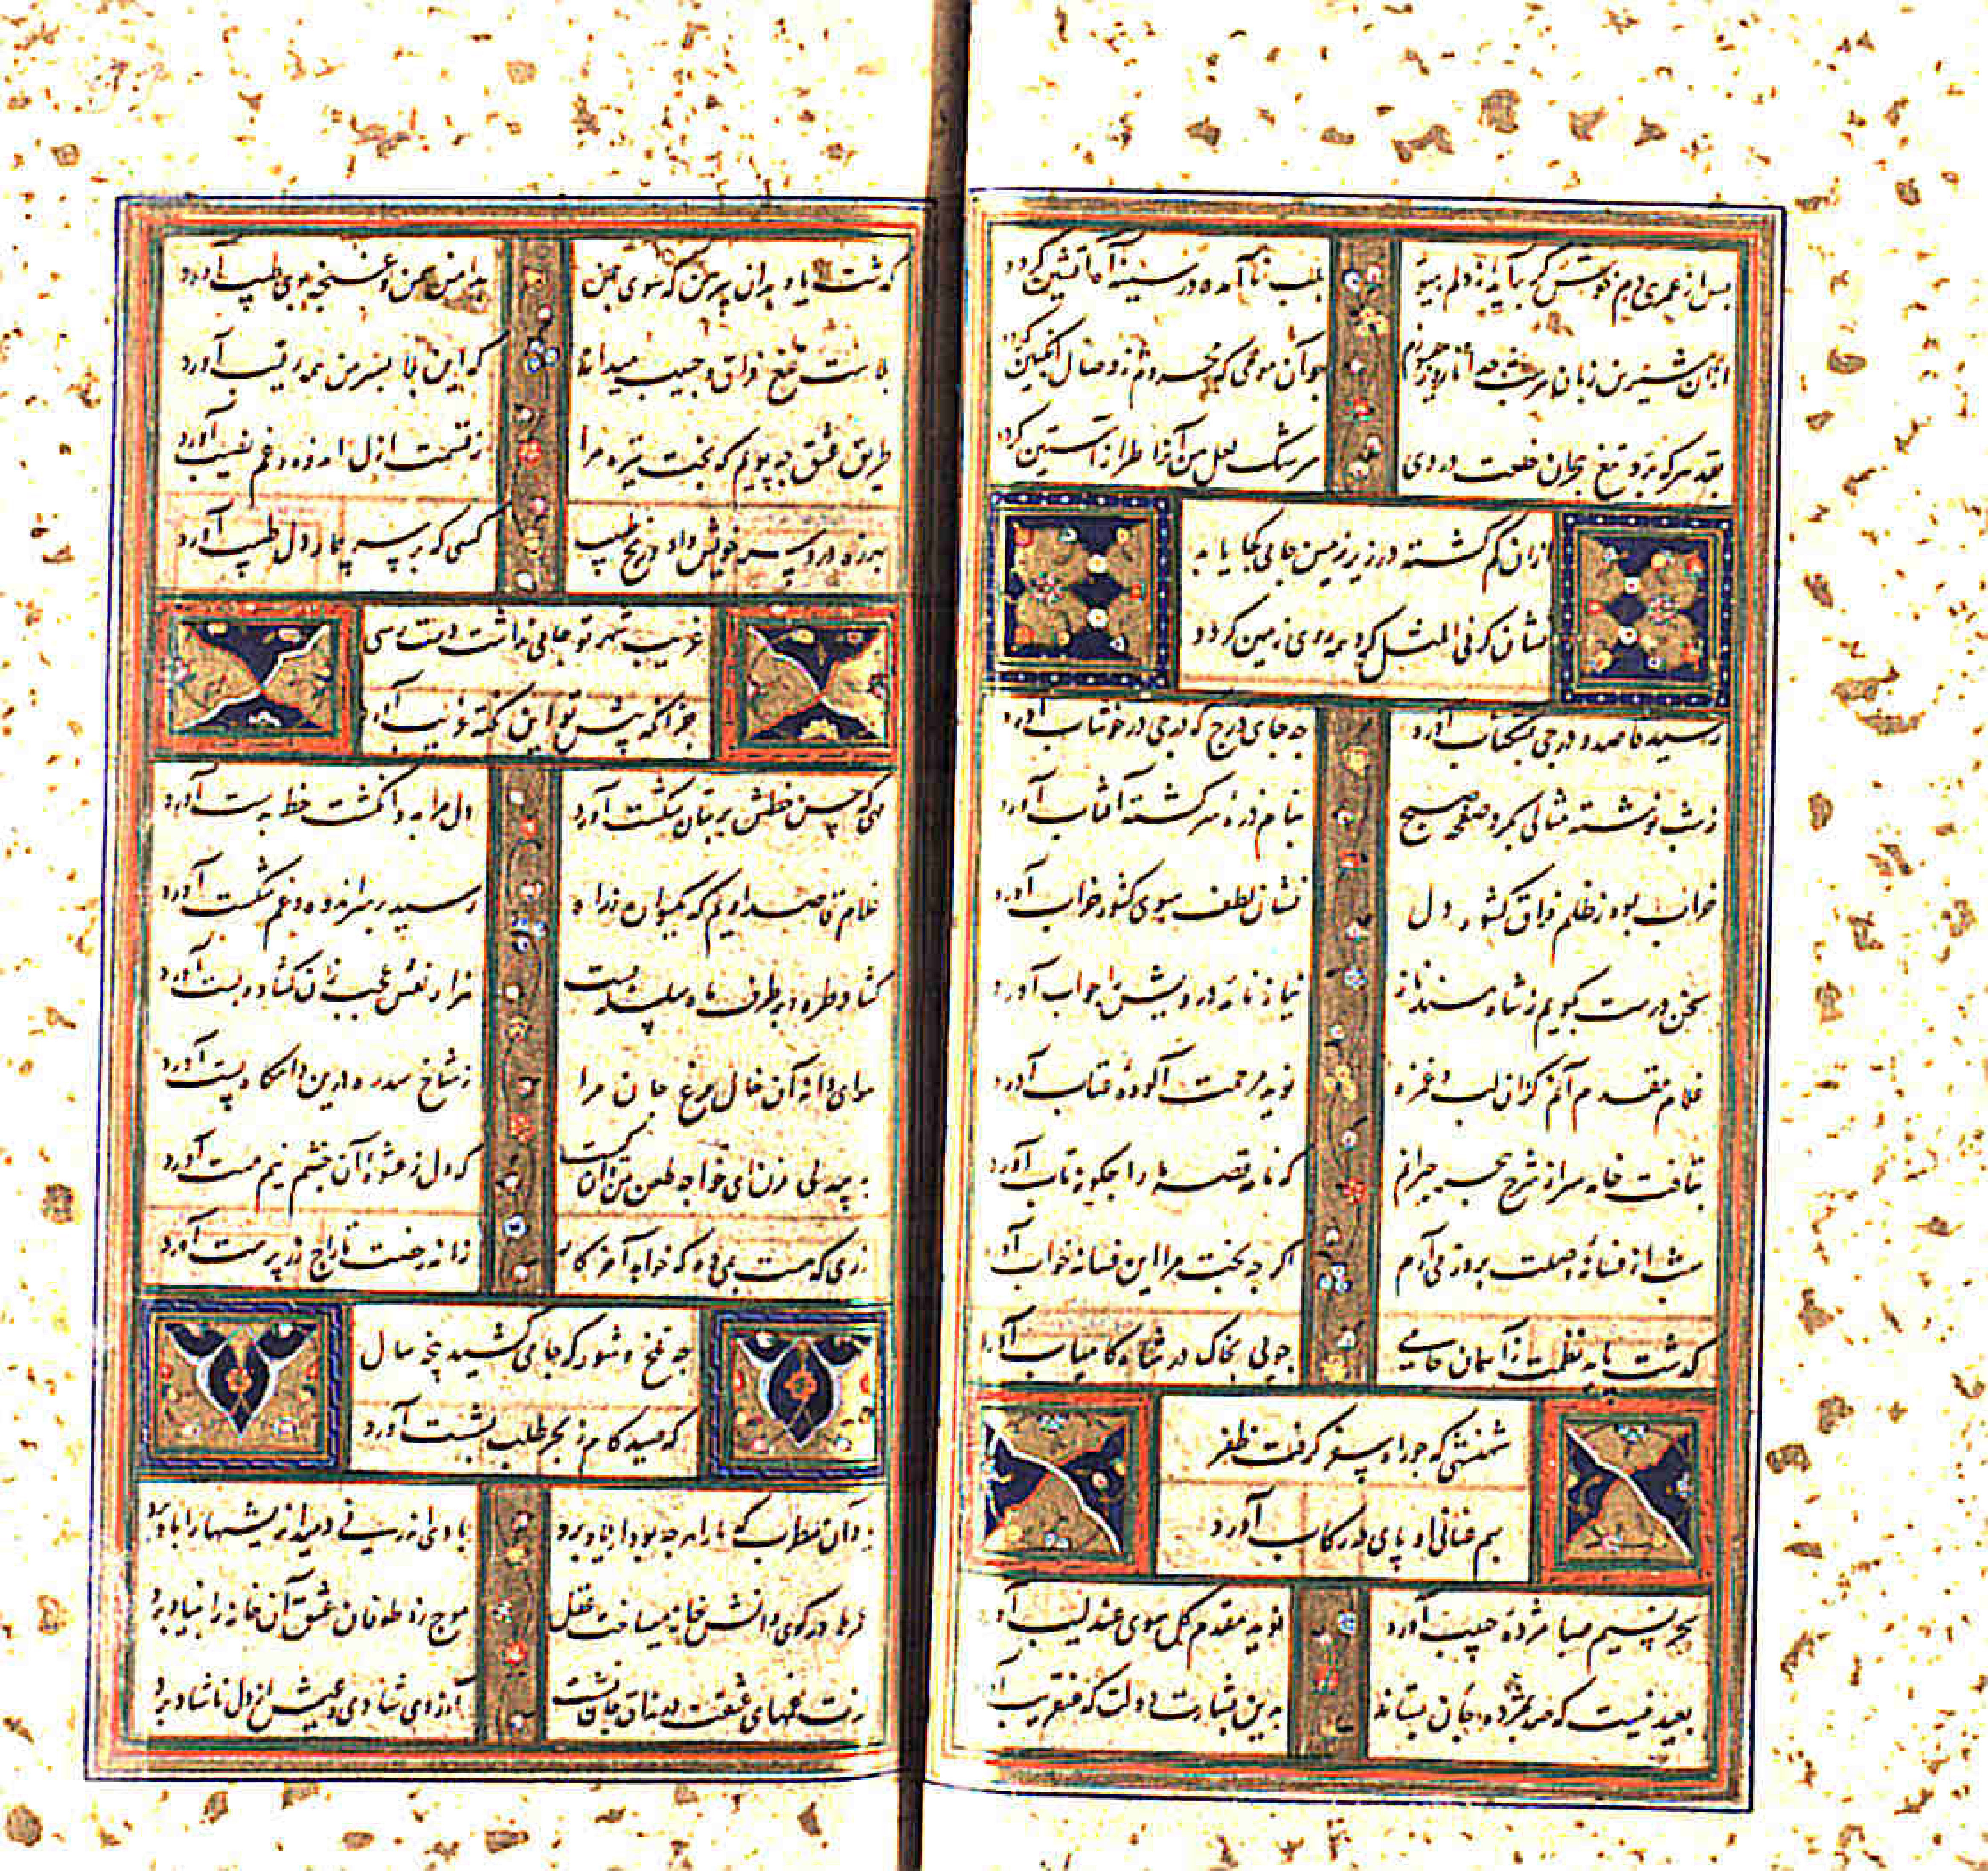 پس از عمری دم خوش گر برآید از دلم بی تو
بلب نا آمده در سینه آه آتشین کردد
ازان شیرین زبان
جو آن مومی که محروم از وصال انکبین کردد
بقد هر که برد تیغ هجران خلعت دردی
سرشک لعل من آنرا طراز آستین کردد
ازان کم کشته در زیر زمین جامی کجا یابد
نشان کر فی المثل کرد همه روی زمین کردد
رسید قاصد و درجی مشکناب آورد
چه جای درج که درجی در خوشاب آورد
ز شب نوشته مثالی بکرد صفحه صبح
بنام ذره سرکشته آفتاب آورد
خراب بود ز ظلم فراق کشور دل
نشان لطف سوی کشور خراب آورد
سخن درست بکویم ز شاه مسند ناز
نیاز نامه درویش را جواب آورد
غلام مقدم آنم کزان لب و غمزه
نوید مرحمت آلوده عتاب آورد
بتافت خامه سر از شرح هجر حیرانم
که نامه قصه ما را چکونه تاب آورد
شب از فسانه وصلت بروز می آرم
اکر چه بخت مرا این فسانه خواب آورد
کذشت پایه نظمت ز آسمان جامی
چو پی بخاک در شاه کامیاب آورد
شهنشهی که چو راه سفر کرفت ظفر
بهم عنانی او پای در رکاب آورد
سحر نسیم صبا مژده حبیب آورد
نوید مقدم کل سوی عندلیب آورد
بعید نیست که صد مژده جان بستاند
بدین بشارت دولت که عنقریب آورد
کذشت باد بران پیرهن که سوی چمن
بدامن سمن و غنچه بوی طیب آورد
بلاست تیغ فراق و حبیب میداند
که این بلا بسر من همه رقیب آورد
طریق عشق چه پویم که بخت تیره مرا
ز قسمت ازل اندوه و غم نصیب آورد
بهرزه درد سر خویش داد و رنج طبیب
کسی که بر سر بیمار دل طبیب آورد
غریب شهر تو جامی نداشت دست رسی
جز آنکه پیش تو این نکته غریب آورد
مهی که حسن خطش بر بتان شکست آورد
دل مرا بدو انکشت خط بدست آورد
غلام قاصد اویم که
رسید بر سر اندوه و غم شکست آورد
کشاد طره و بر طرف ماه سلسله بست
هزار نقش عجب زان کشاد و بست آورد
هوای دانه آن خال مرغ جان مرا
ز شاخ سدره درین دامکاه پست آورد
به بیدلی مزن ای خواجه طعن من
که دل ز عشوه آن چشم نیم مست آورد
زمانه رخصت تاراج زر پرست آورد
چه تلخ و شور که جامی کشید پنجه سال
که صید کام ز بحر طلب بشست آورد
رو آن مطرب که ما را هر چه بود از یاد برد
باد
عمرها در کوی دانش خانه میساخت عقل
موج زد طوفان عشق آن خانه را بنیاد برد
رفت غمهای عشقت
آرزوی شادی و عیش از دل ناشاد برد